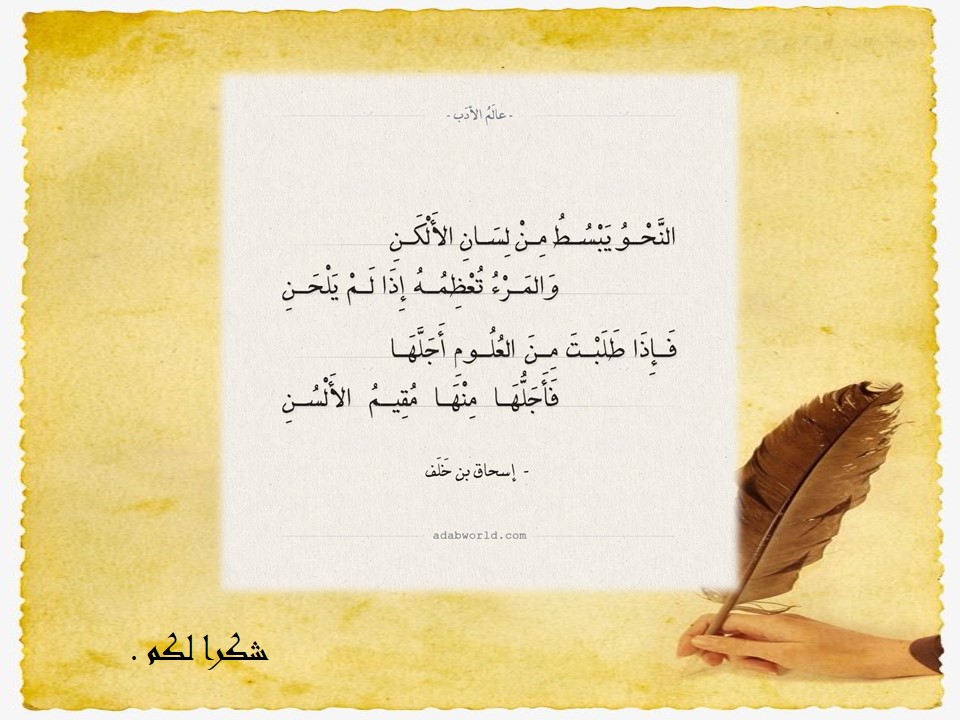 - عالَمُ الأدَب -
النَّحْـوُ يَبْسُـطُ مِـنْ لِسَـانِ الأَلْكَـنِ
وَالمَـرْءُ تُعْظِمُـهُ إِذَا لَـمْ يَلْحَـنِ
فَـإِذَا طَلَبْـتَ مِـنَ العُلُـومِ أَجَلَّهَـا
فَأَجَلُّهَـا مِنْهَـا مُقِيـمُ الأَلْسُـنِ
- إسحاق بن خَلَف
adabworld.com
شكرا لكم .